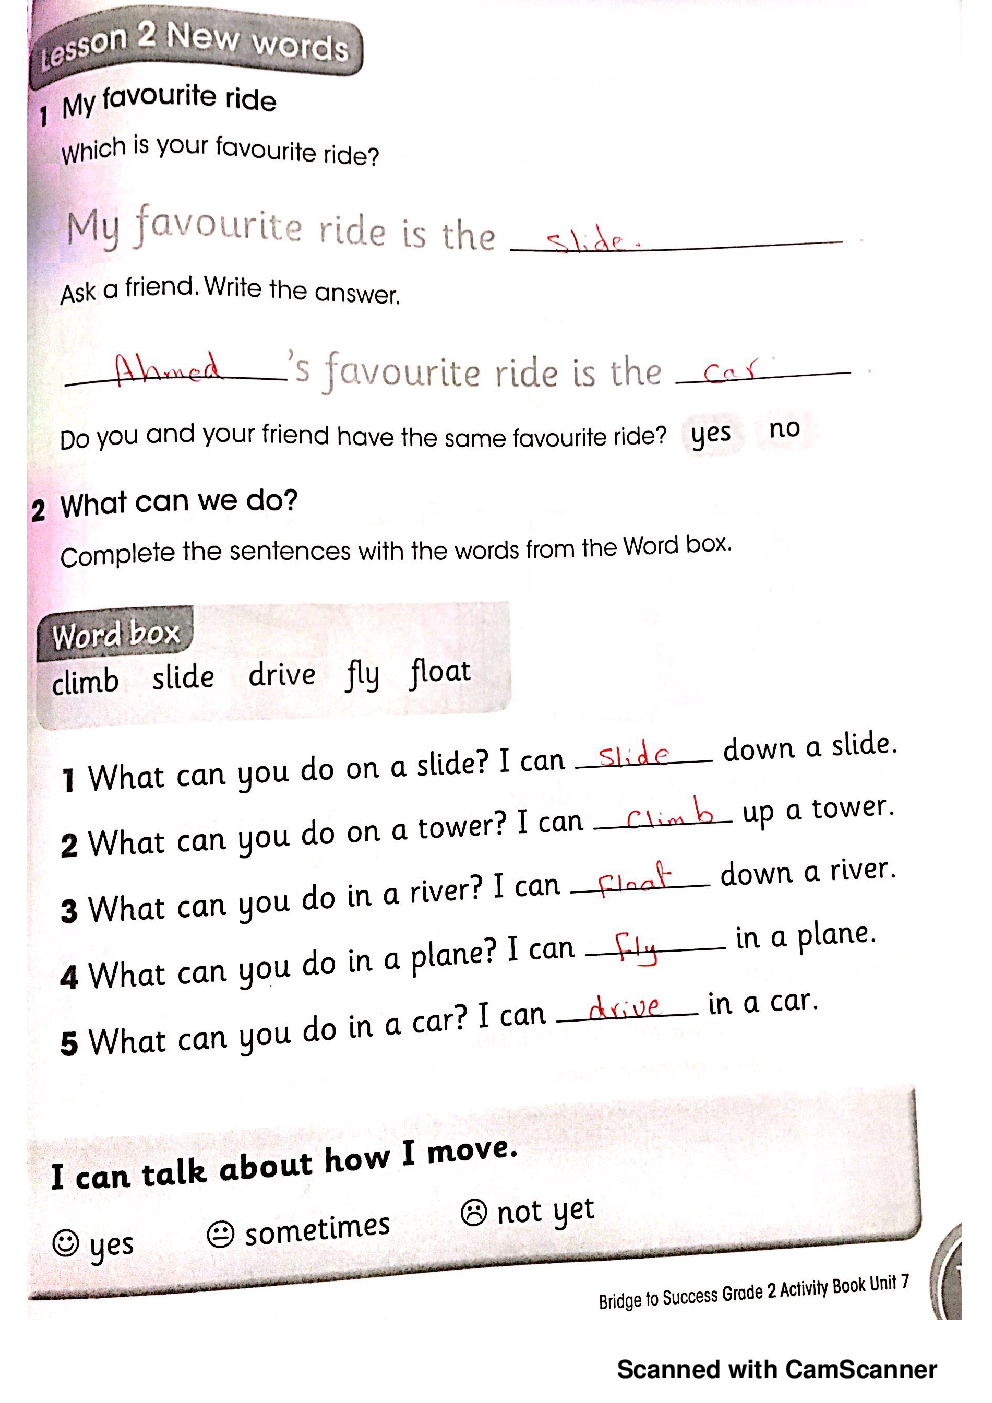 Lesson 2 New words
1 My favourite ride
Which is your favourite ride?
My favourite ride is the slide.
Ask a friend. Write the answer.
Ahmed 's favourite ride is the car
Do you and your friend have the same favourite ride? yes no
2 What can we do?
Complete the sentences with the words from the Word box.
Word box
climb slide drive fly float
1 What can you do on a slide? I can slide down a slide.
2 What can you do on a tower? I can climb up a tower.
3 What can you do in a river? I can float down a river.
4 What can you do in a plane? I can fly in a plane.
5 What can you do in a car? I can drive in a car.
I can talk about how I move.
yes sometimes not yet
Bridge to Success Grade 2 Activity Book Unit 7
Scanned with CamScanner